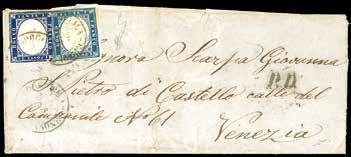 Signora Scarpa Giovanna
P.D.
San Pietro di Castello calle del
Campanile No 61
Venezia